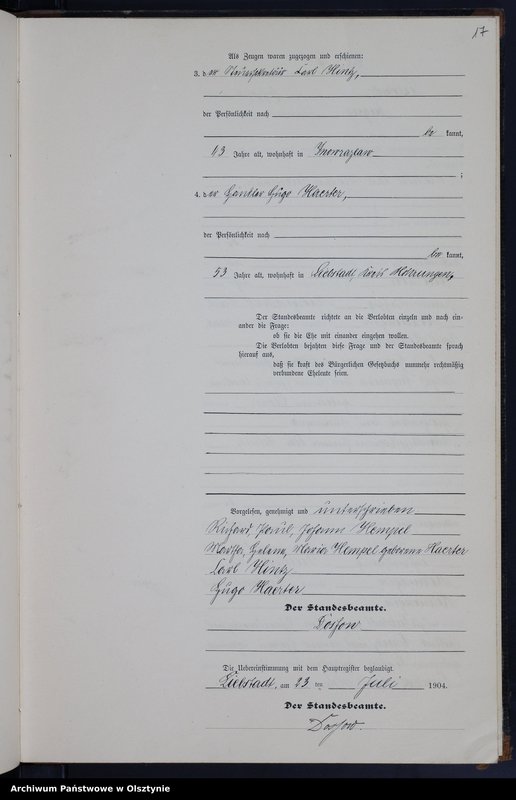 17
Als Zeugen waren zugezogen und erschienen:
3. der Carl Hintz,
der Persönlichkeit nach
be kannt,
43 Jahre alt, wohnhaft in Inowrazlaw
;
4. der Hugo Haerter,
der Persönlichkeit nach
be kannt,
53 Jahre alt, wohnhaft in Liebstadt, Kreis Mohrungen.
Der Standesbeamte richtete an die Verlobten einzeln und nach ein-
ander die Frage:
ob sie die Ehe mit einander eingehen wollen.
Die Verlobten bejahten diese Frage und der Standesbeamte sprach
hierauf aus,
daß sie kraft des Bürgerlichen Gesetzbuchs nunmehr rechtmäßig
verbundene Eheleute seien.
Vorgelesen, genehmigt und unterschrieben
Richard, Paul, Johann Hempel
Martha, Helene, Maria Hempel geborene Haerter
Carl Hintz
Hugo Haerter
Der Standesbeamte.
Dossow
Die Uebereinstimmung mit dem Hauptregister beglaubigt.
Liebstadt, am 23 ten Juli 1904.
Der Standesbeamte.
Dossow.
Archiwum Państwowe w Olsztynie